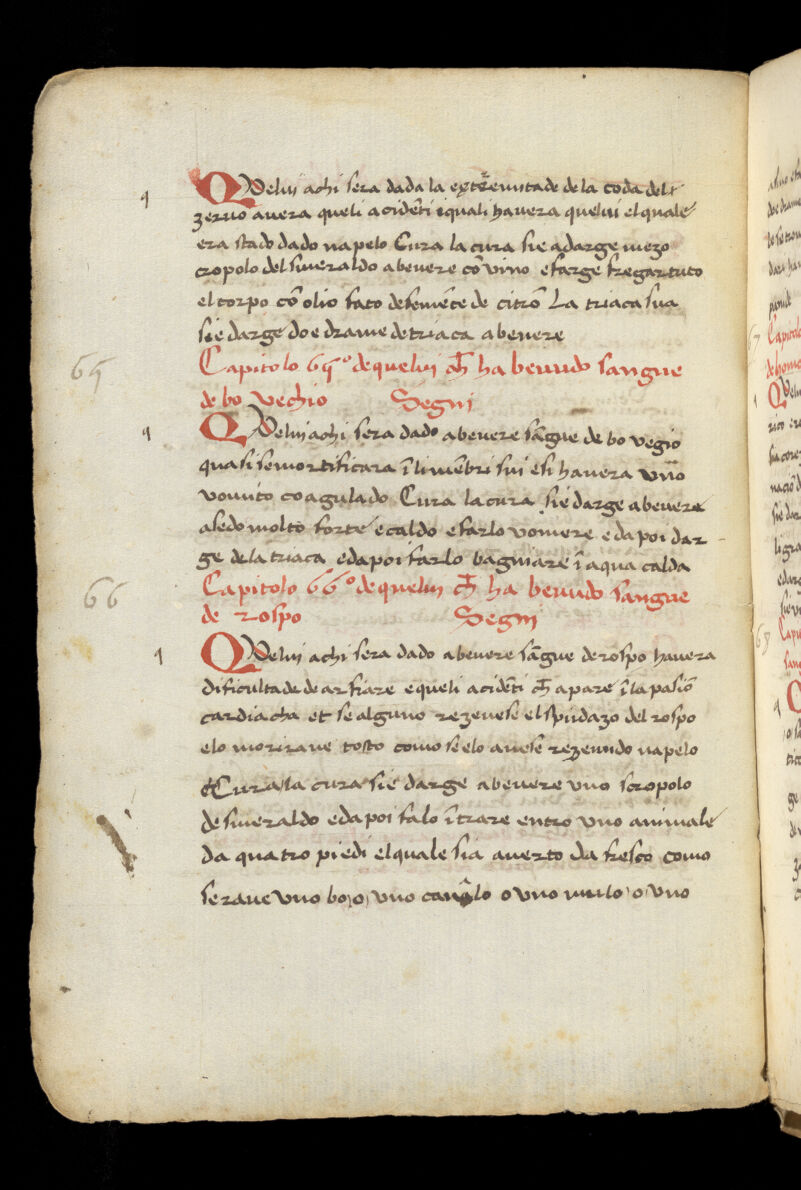 QVelui achi sera dada la extẽremitade de la coda del
zeruo auera queli acidẽti i quali hauera quelui el quale
era stado dado napelo Cura la cura sie a darge mezo
cropolo del smeraldo a beuere cõ vino e farge fregar tuto
el corpo cõ olio fato de semẽte de citrõ La triaca sua
sie darge doe drame de triaca a beuere
Capitolo 65º de quelui ch̃ ha beuudo sangue
de bo vechio Segni
65
QVelui achi sera dado a beuere sãgue de bo vegio
quasi se mortificara ĩ li mẽbri sui e si hauera vño
vomito coagulado Cura la cura sie darge a beuere
asedo molto forte e caldo e farlo vomere e da poi dar
ge de la triaca e da poi farlo bagniare ĩ aqua calda
Capitolo 66º de quelui ch̃ ha beuudo sangue
de rospo Segni
66
QVelui achi sera dado a beuere sãgue de rospo hauera
dificultade de arfiare e queli acidẽti ch̃ apare ĩ la pasiõ
cardiacha et se alguno rezeuese el spudazo del rospo
elo morirave tosto como se elo auese rezeuudo napelo
Cura la cura sie darge a beuere vno scropolo
de smeraldo e da poi falo ĩtrare entro vno animale
da quatro piedi el quale sia auerto da fresco como
seraue vno bo o vno o vno mulo o vno